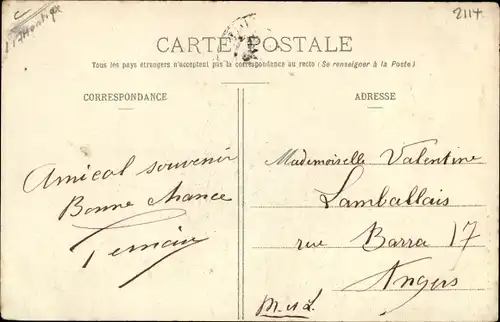 2114
CARTE POSTALE
Tous les pays étrangers n'acceptent pas la correspondance au recto (Se renseigner à la Poste)
CORRESPONDANCE
Amical souvenir
Bonne chance
ADRESSE
Mademoiselle Valentine
Lamballais
rue Barra 17
Angers
M-et L.